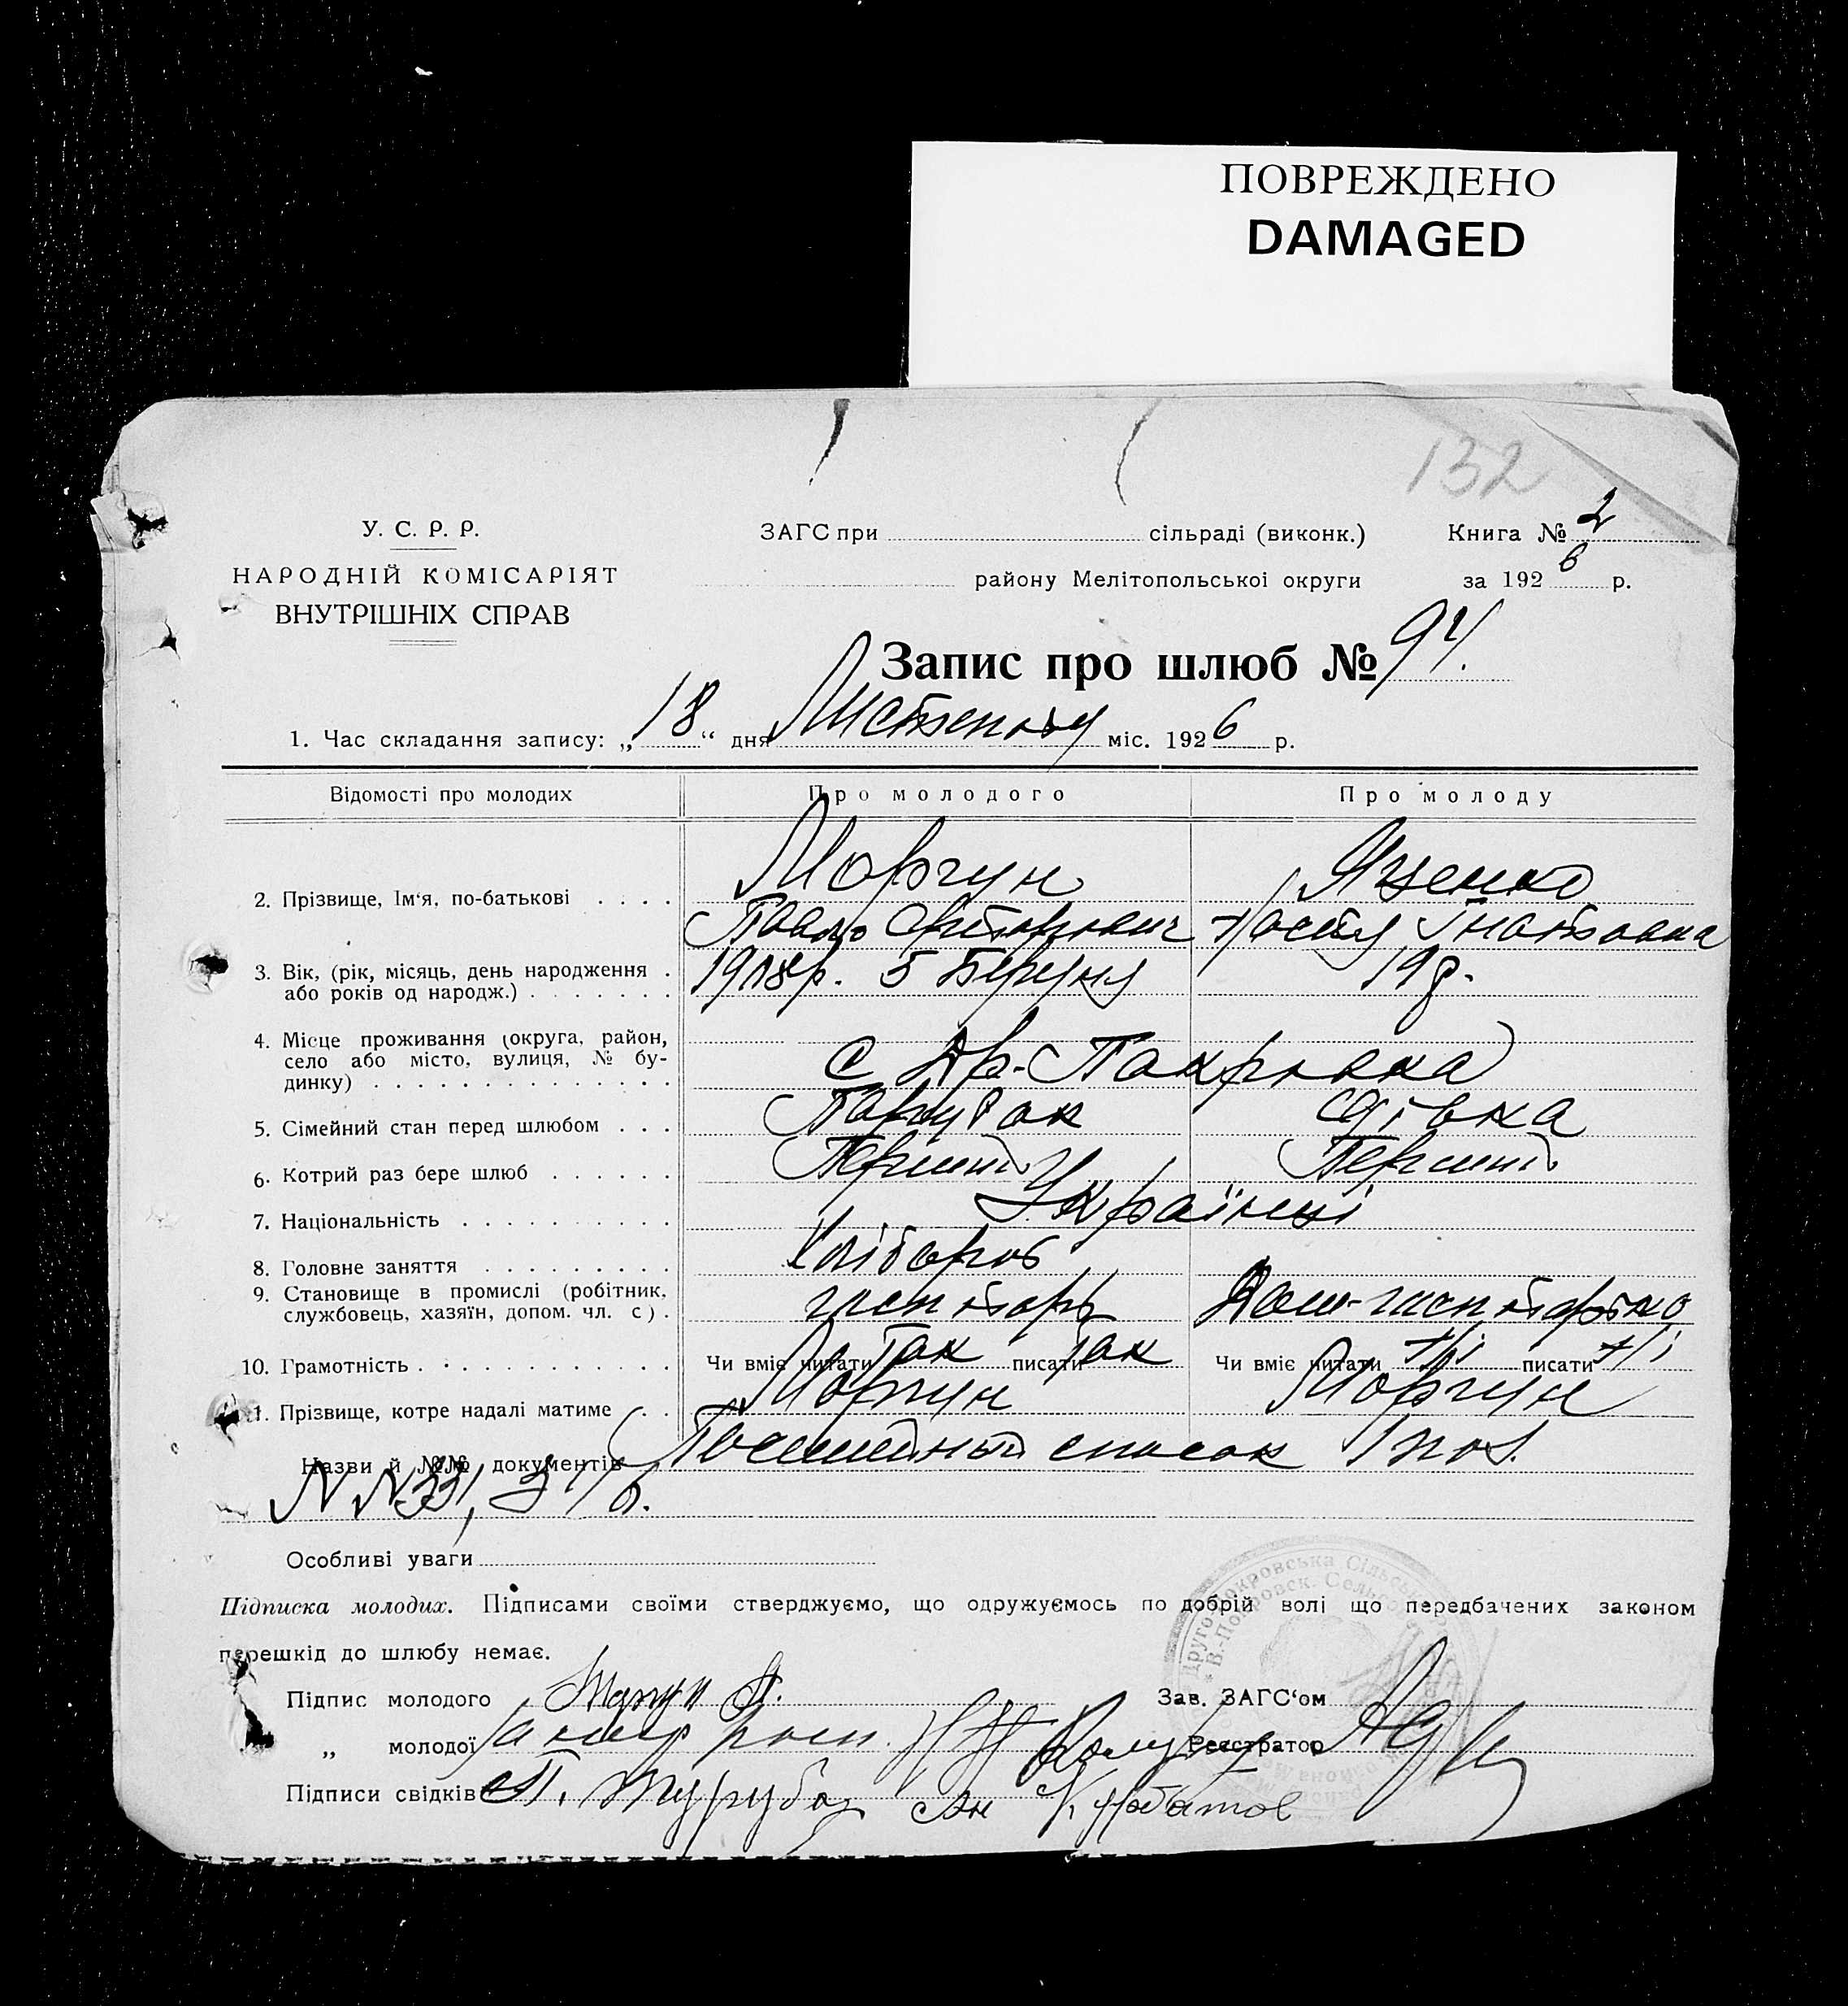 ПОВРЕЖДЕНО
DAMAGED
132
У. С. Р. Р.
НАРОДНІЙ КОМІСАРІЯТ
ВНУТРІШНІХ СПРАВ
ЗАГС при сільраді (виконк.)
району Мелітопольської округи
Книга № 2
за 1926 р.
Запис про шлюб № 94.
1. Час складання запису: „18“ дня Листопаду міс. 1926 р.
Відомості про молодих Про молодого Про молоду
Моргун Яценко
2. Прізвище, Ім'я, по-батькові . . . .
Павло Настя Гнатовна
3. Вік, (рік, місяць, день народження . 5 Березня 19 р.
або років од народж.) . . . . . . .
4. Місце проживання (округа, район,
село або місто, вулиця, № бу- с Др.-Покровка
динку) . . . . . . . . . . . . . .
5. Сімейний стан перед шлюбом . . . Парубак дівка
6. Котрий раз бере шлюб . . . . . . Перший Перший
7. Національність . . . . . . . . . . Українці
8. Головне заняття . . . . . . . . . Хлібороб
9. Становище в промислі (робітник,
службовець, хазяїн, допом. чл. с) .
10. Грамотність . . . . . . . . . . . . Чи вміє читати Так писати Так Чи вміє читати Ні писати Ні
11. Прізвище, котре надалі матиме . . Моргун Моргун
Назви й №№ документів Посемейный список
Особливі уваги
Підписка молодих. Підписами своїми стверджуємо, що одружуємось по добрій волі що передбачених законом
перешкід до шлюбу немає.
Підпис молодого Моргун П. Зав. ЗАГС'ом
„ молодої Реєстратор
Підписи свідків